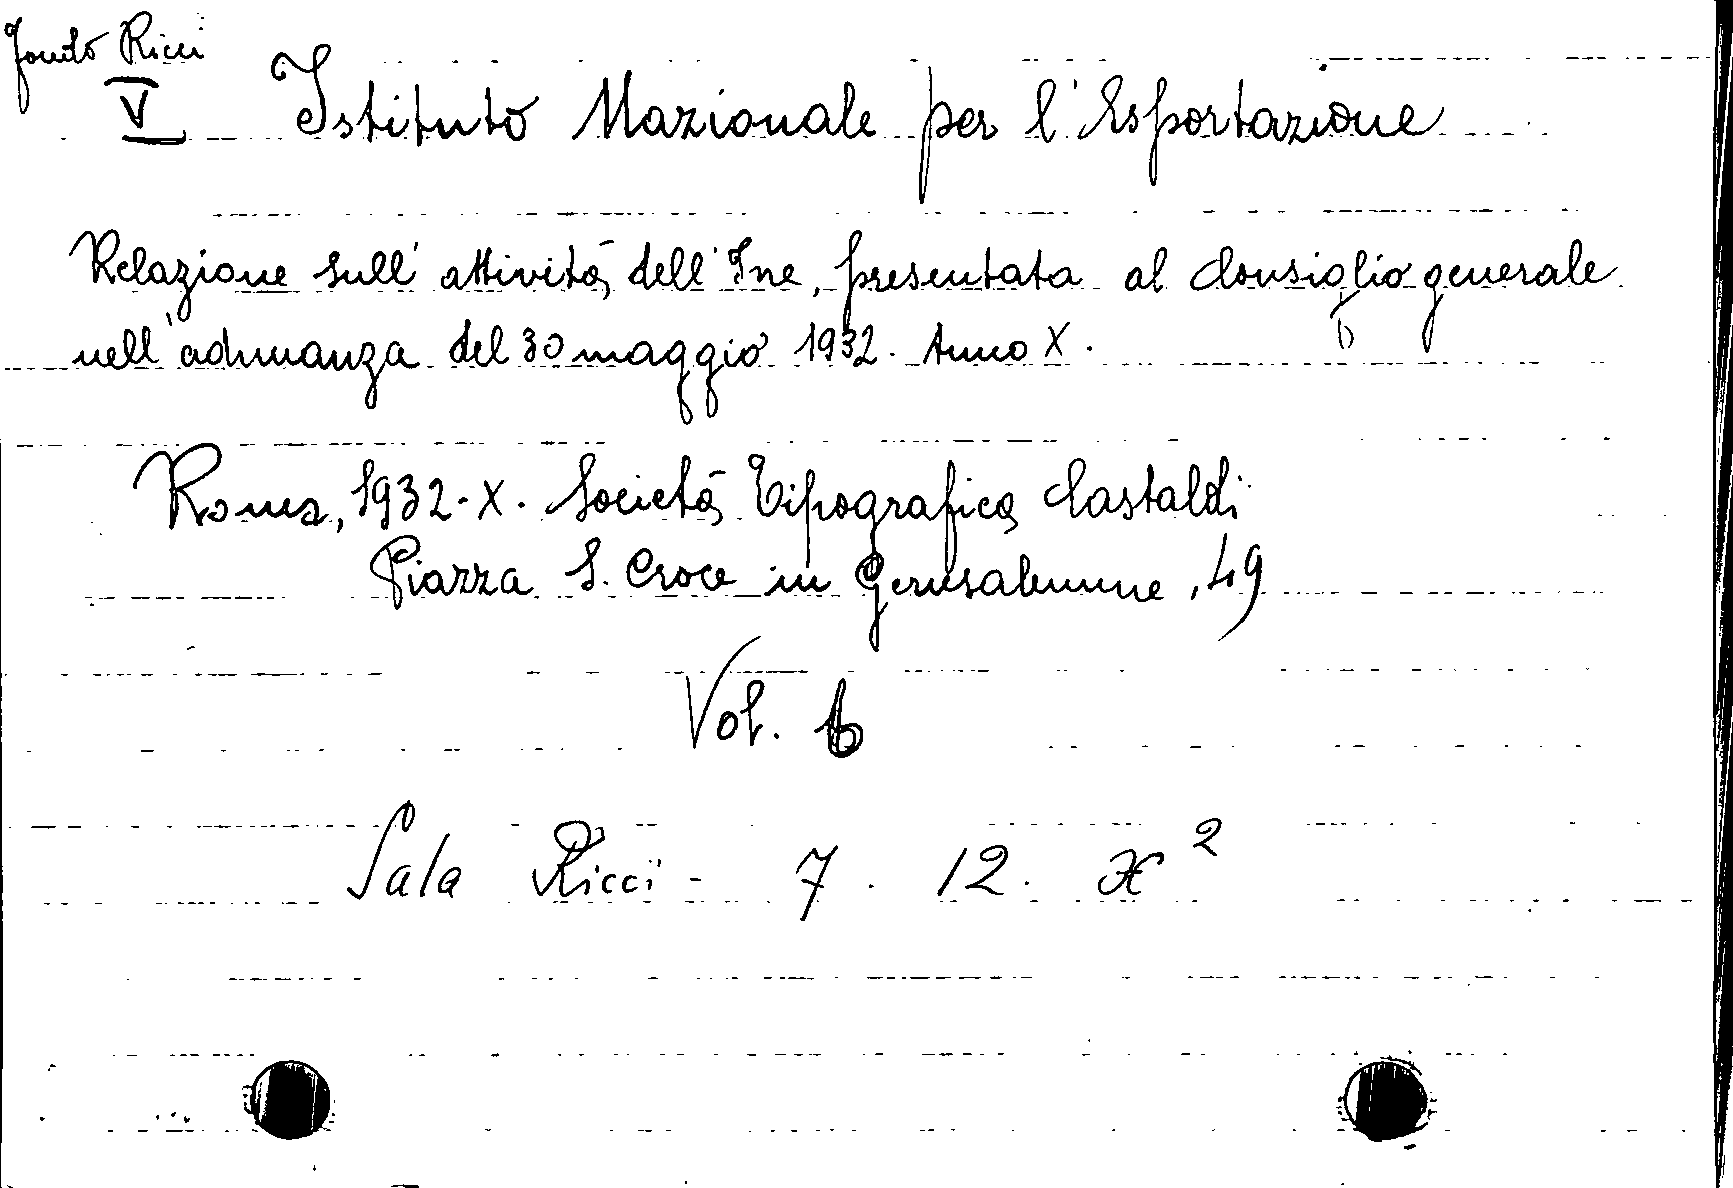 Fondo Ricci
V Istituto Nazionale per l'Esportazione
Relazione sull'attività dell'Ine, presentata al Consiglio generale
nell'adunanza del 30 maggio 1932. Anno X.
Roma, 1932-X. Società Tipografica Castaldi
Piazza S. Croce in Gerusalemme, 49
Vol. 6
Sala Ricci - 7. 12. H²